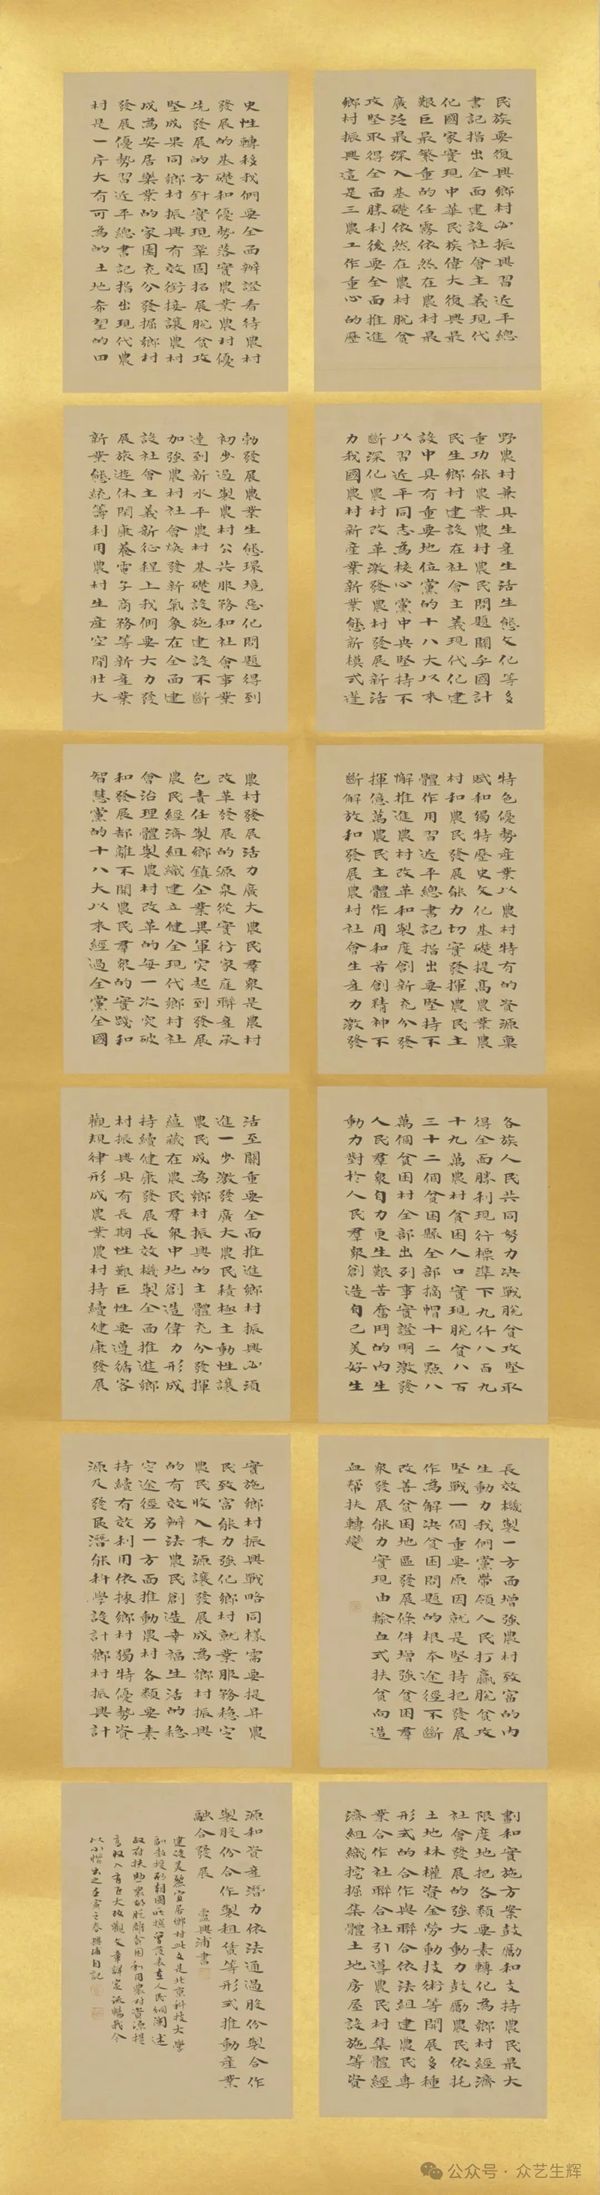 民族要復興鄉村必振興習近平總
書記指出全面建設社會主義現代
化國家實現中華民族偉大復興最
艱巨最繁重的任務依然在農村最
廣泛最深入基礎依然在農村脫貧
攻堅取得全面勝利後要全面推進
鄉村振興這是三農工作重心的歷
史性轉移我們要全面辯證看待農村
發展的基礎和優勢落實農業農村優
先發展的方針實現鞏固拓展脫貧攻
堅成果同鄉村振興有效銜接讓農村
成為安居樂業的家園充分發掘鄉村
發展優勢習近平總書記指出現代農
村是一片大有可為的土地希望的田
野農村兼具生產生活生態文化等多
重功能農業農村農民問題關乎國計
民生鄉村建設在社會主義現代化建
設中具有重要地位黨的十八大以來
以習近平同志為核心黨中央堅持不
斷深化農村改革激發農村發展新活
力我國農村新產業新業態新模式蓬
勃發展農業生態環境惡化問題得到
初步遏製農村公共服務和社會事業
達到新水平農村基礎設施建設不斷
加強農村社會煥發新氣象在全面建
設社會主義新征程上我們要大力發
展旅遊休閒康養電子商務等新產業
新業態統籌利用農村生產空間壯大
特色優勢產業以農村特有的資源稟
賦和獨特歷史文化基礎提高農業農
村和農民發展能力切實發揮農民主
體作用習近平總書記指出要堅持不
懈推進農村改革和製度創新充分發
揮億萬農民主體作用和首創精神不
斷解放和發展農村社會生產力激發
農村發展活力廣大農民羣衆是農村
改革發展的源泉從實行家庭聯產承
包責任製鄉鎮企業異軍突起到發展
農民經濟組織建立健全現代鄉村社
會治理體製農村改革的每一次突破
和發展都離不開農民羣衆的實踐和
智慧黨的十八大以來經過全黨全國
各族人民共同努力決戰脫貧攻堅取
得全面勝利現行標準下九仟八百九
十九萬農村貧困人口實現脫貧八百
三十二個貧困縣全部摘帽十二點八
萬個貧困村全部出列事實證明激發
人民羣衆自力更生艱苦奮鬥的內生
動力對於人民羣衆創造自己美好生
活至關重要全面推進鄉村振興必須
進一步激發廣大農民積極主動性讓
農民成為鄉村振興的主體充分發揮
蘊藏在農民羣衆中地創造偉力形成
持續健康發展長效機製全面推進鄉
村振興具有長期性艱巨性要遵循客
觀規律形成農業農村持續健康發展
長效機製一方面增強農村致富的內
生動力我們黨帶領人民打贏脫貧攻
堅戰一個重要原因就是堅持把發展
作為解決貧困問題的根本途徑不斷
改善貧困地區發展條件增強貧困羣
衆發展能力實現由輸血式扶貧向造
血幫扶轉變
實施鄉村振興戰略同樣需要提昇農
民致富能力強化鄉村就業服務穩定
農民收入來源讓發展成為鄉村振興
的有效辦法農民創造幸福生活的穩
定途徑另一方面推動農村各類要素
持續有效利用依據鄉村獨特優勢資
源及發展潛能科學設計鄉村振興計
劃和實施方案鼓勵和支持農民最大
限度地把各類要素轉化為鄉村經濟
社會發展的強大動力鼓勵農民依托
土地林權資金勞動技術等開展多種
形式的合作與聯合依法組建農民專
業合作社聯合社引導農村集體經
濟組織挖掘集體土地房屋設施等資
源和資產潛力依法通過股份製合作
製股份合作製租賃等形式推動產業
融合發展 盧興浦書
建设美麗宜居鄉村此文是北京科技大學
副教授
以小楷書之壬寅之春興浦自記
公众号·众艺生辉